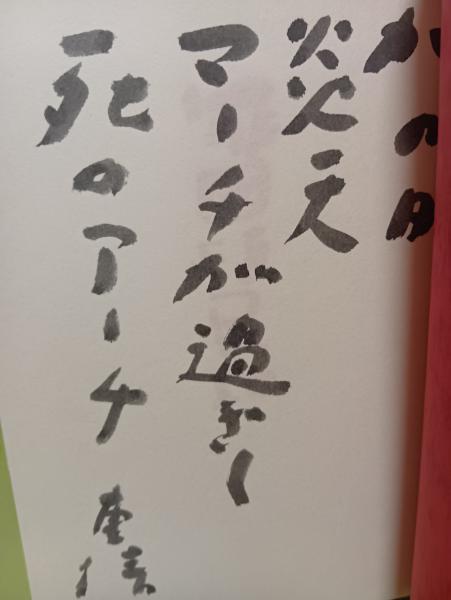 かの日
炎天
マーチが過ぎし
死のアーチ
重信